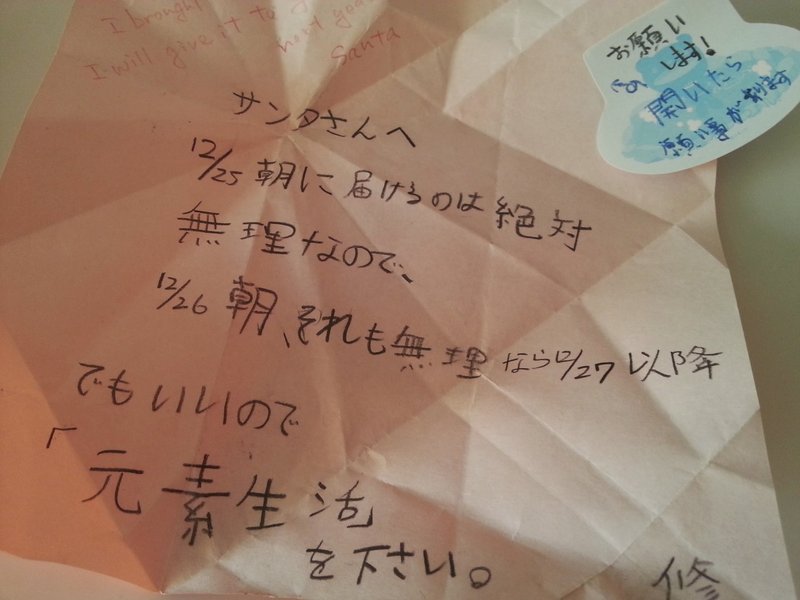 I brought
I will give it to
next year
Santa
お願い
します!
開いたら
願い事が
サンタさんへ
12/25 朝に届けるのは絶対
無理なので、
12/26 朝、それも無理なら12/27 以降
でもいいので
「元素生活」
を下さい。
修